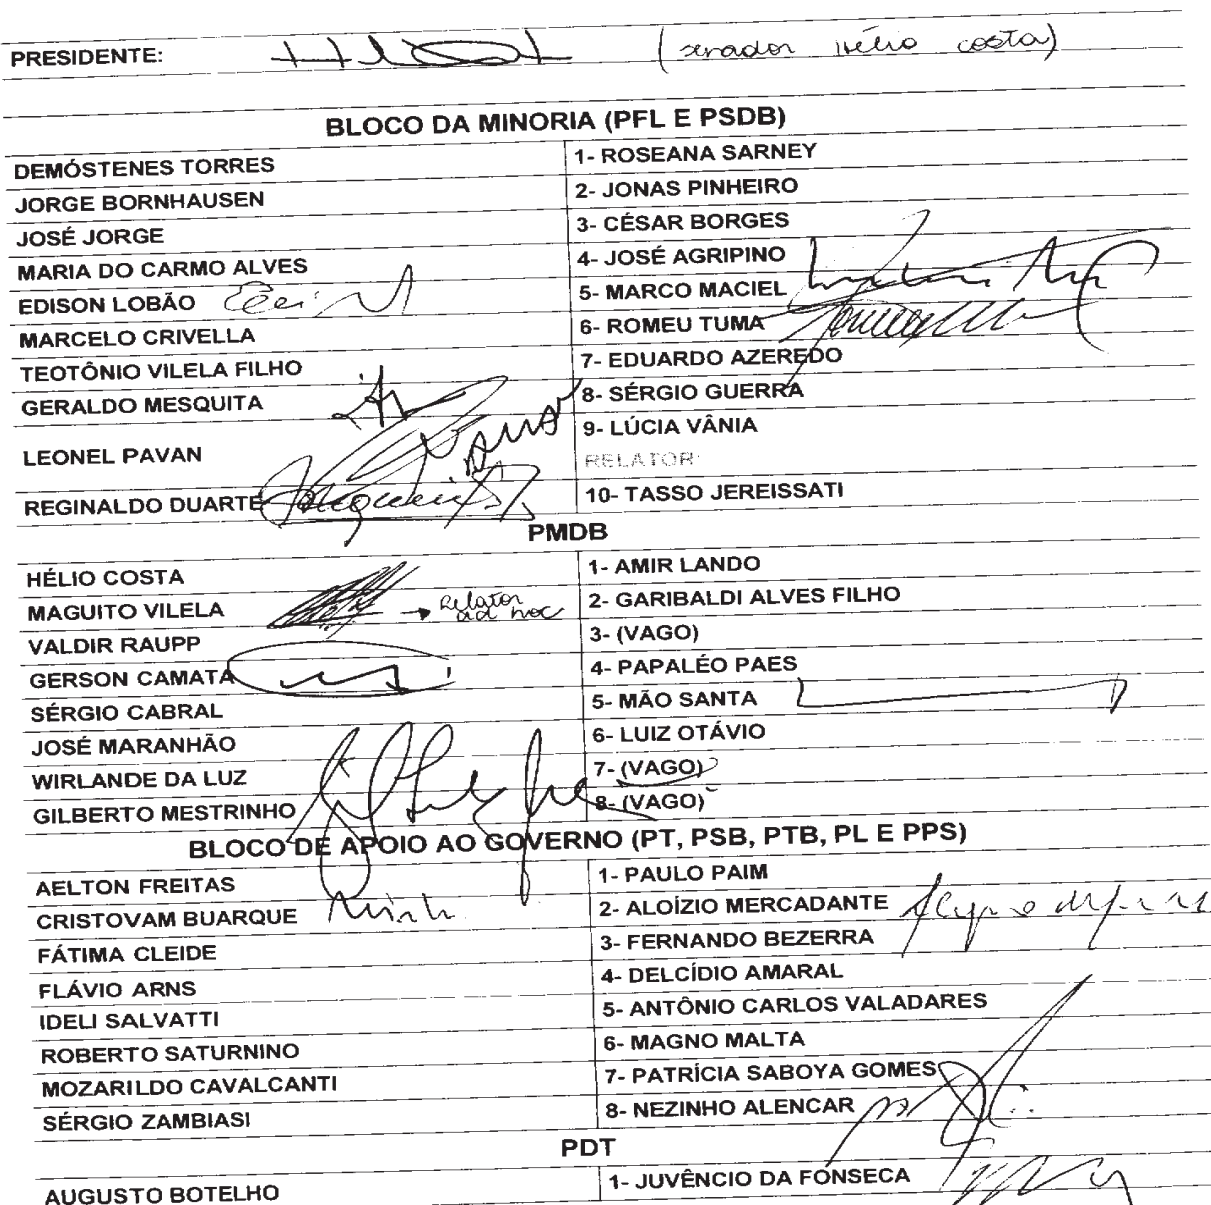 PRESIDENTE: (senador Hélio Costa)
BLOCO DA MINORIA (PFL E PSDB)
DEMÓSTENES TORRES 1- ROSEANA SARNEY
JORGE BORNHAUSEN 2- JONAS PINHEIRO
JOSÉ JORGE 3- CÉSAR BORGES
MARIA DO CARMO ALVES 4- JOSÉ AGRIPINO
EDISON LOBÃO 5- MARCO MACIEL
MARCELO CRIVELLA 6- ROMEU TUMA
TEOTÔNIO VILELA FILHO 7- EDUARDO AZEREDO
GERALDO MESQUITA 8- SÉRGIO GUERRA
LEONEL PAVAN 9- LÚCIA VÂNIA
RELATOR:
REGINALDO DUARTE 10- TASSO JEREISSATI
PMDB
HÉLIO COSTA 1- AMIR LANDO
MAGUITO VILELA Relator ad hoc 2- GARIBALDI ALVES FILHO
VALDIR RAUPP 3- (VAGO)
GERSON CAMATA 4- PAPALÉO PAES
SÉRGIO CABRAL 5- MÃO SANTA
JOSÉ MARANHÃO 6- LUIZ OTÁVIO
WIRLANDE DA LUZ 7- (VAGO)
GILBERTO MESTRINHO 8- (VAGO)
BLOCO DE APOIO AO GOVERNO (PT, PSB, PTB, PL E PPS)
AELTON FREITAS 1- PAULO PAIM
CRISTOVAM BUARQUE 2- ALOÍZIO MERCADANTE
FÁTIMA CLEIDE 3- FERNANDO BEZERRA
FLÁVIO ARNS 4- DELCÍDIO AMARAL
IDELI SALVATTI 5- ANTÔNIO CARLOS VALADARES
ROBERTO SATURNINO 6- MAGNO MALTA
MOZARILDO CAVALCANTI 7- PATRÍCIA SABOYA GOMES
SÉRGIO ZAMBIASI 8- NEZINHO ALENCAR
PDT
AUGUSTO BOTELHO 1- JUVÊNCIO DA FONSECA